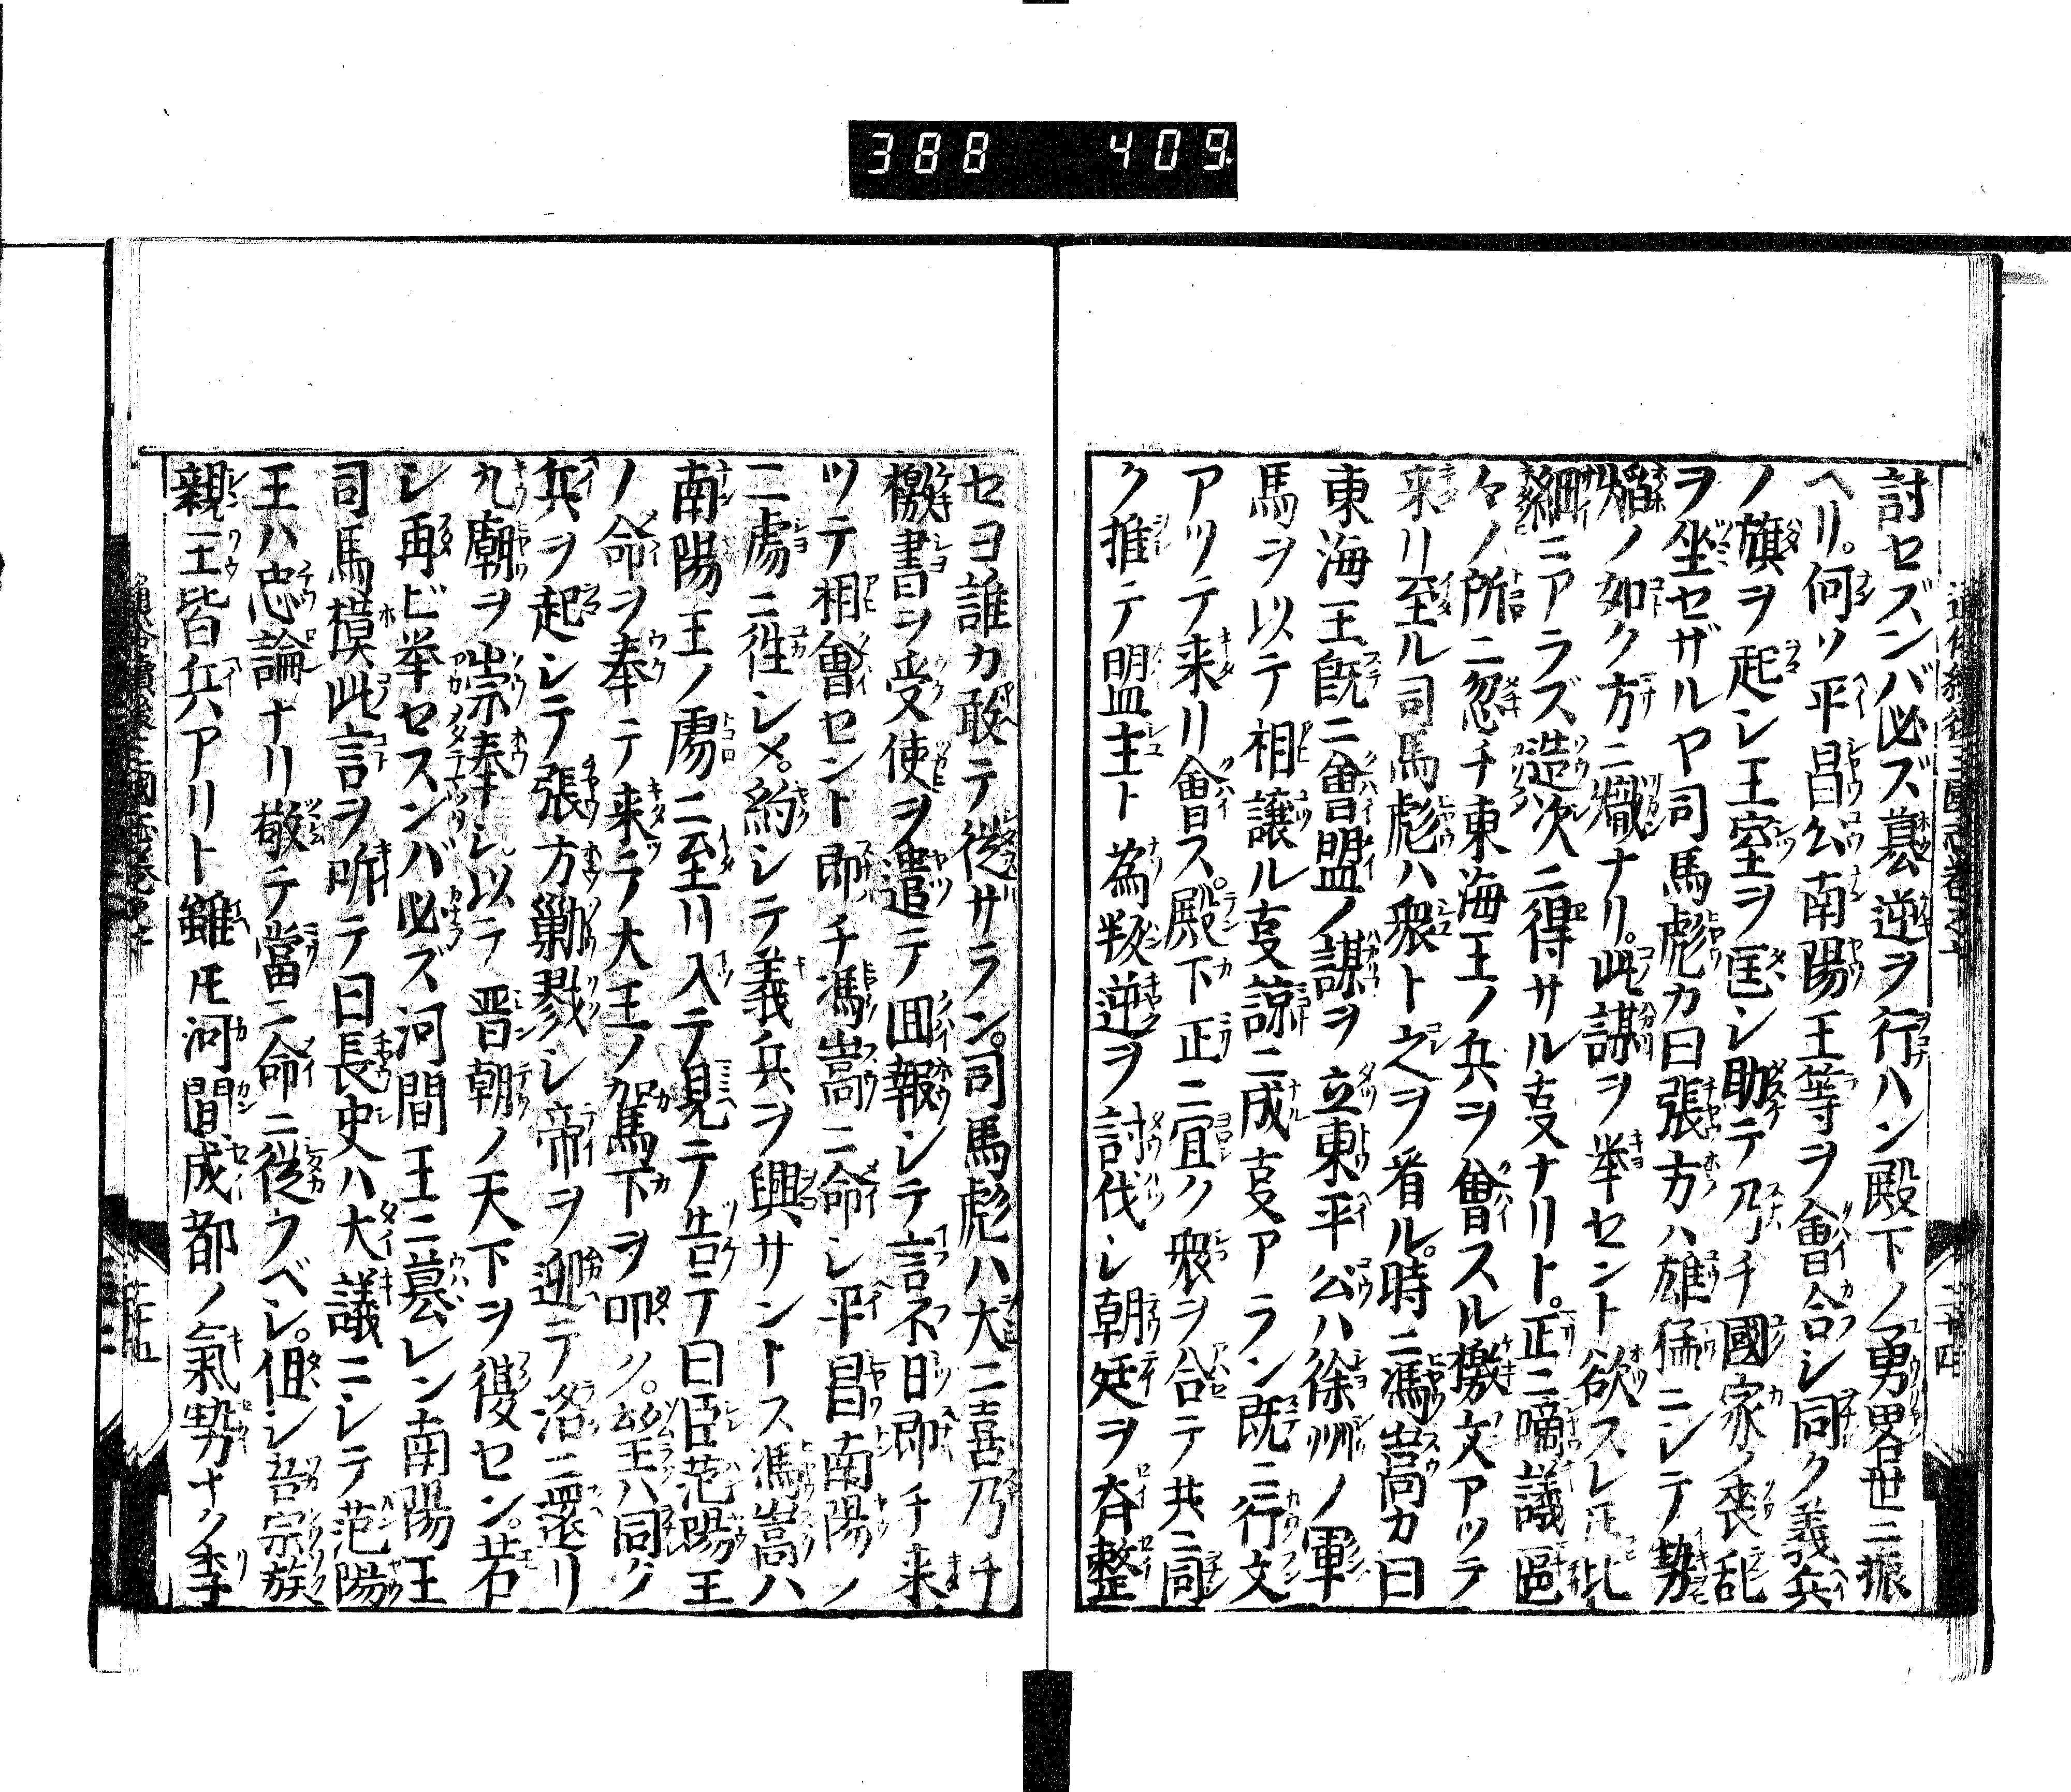 388 409
討セズンバ必ズ簒逆ヲ行ハン殿下ノ勇畧世ニ振
ヘリ。何ソ平昌公南陽王等ヲ會合シ同ク義兵
ノ旗ヲ起シ王室ヲ匡シ助テ乃チ國家ノ喪乱
ヲ坐セザルヤ司馬彪カ曰張方ハ雄猛ニシテ勢
焔ノ如ク方ニ熾ナリ。此謀ヲ举セント欲スレ𪜈此
細ニアラズ造次ニ得サル叓ナリト。正ニ啼議邑
々ノ所ニ忽チ東海王ノ兵ヲ會スル檄文アツテ
来リ至ル司馬彪ハ衆ト之ヲ看ル。時ニ馮嵩カ曰
東海王既ニ會盟ノ謀ヲ立東平公ハ徐州ノ軍
馬ヲ以テ相譲ル叓諒ニ成叓アラン既ニ行文
アツテ来リ會ス。殿下正ニ宜ク衆ヲ合テ共ニ同
ク推テ盟主ト為叛逆ヲ討伐シ朝廷ヲ斉整
セヨ誰カ敢テ從ザラン。司馬彪ハ大ニ喜乃チ
檄書ヲ受使ヲ遣テ回報シテ言不日即チ来
ツテ相會セント即チ馮嵩ニ命シ平昌南陽ノ
二處ニ徃シメ。約シテ義兵ヲ興サントス馮嵩ハ
南陽王ノ處ニ至リ入テ見テ告テ曰臣范陽王
ノ命ヲ奉テ来テ大王ノ駕下ヲ叩ク。玆王ハ同ク
兵ヲ起シテ張方巢戮シ帝ヲ迎テ洛ニ還リ
九廟ヲ崇奉シ以テ晋朝ノ天下ヲ復セン。若
シ再ビ举セスンバ必ズ河間王ニ簒レン南陽王
司馬模此言ヲ听テ曰長史ハ大議ニシテ范陽
王ハ忠論ナリ敬テ當ニ命ニ從フベシ。但シ吾宗族
親王皆兵アリト雖𪜈河間成都ノ氣勢ナク李